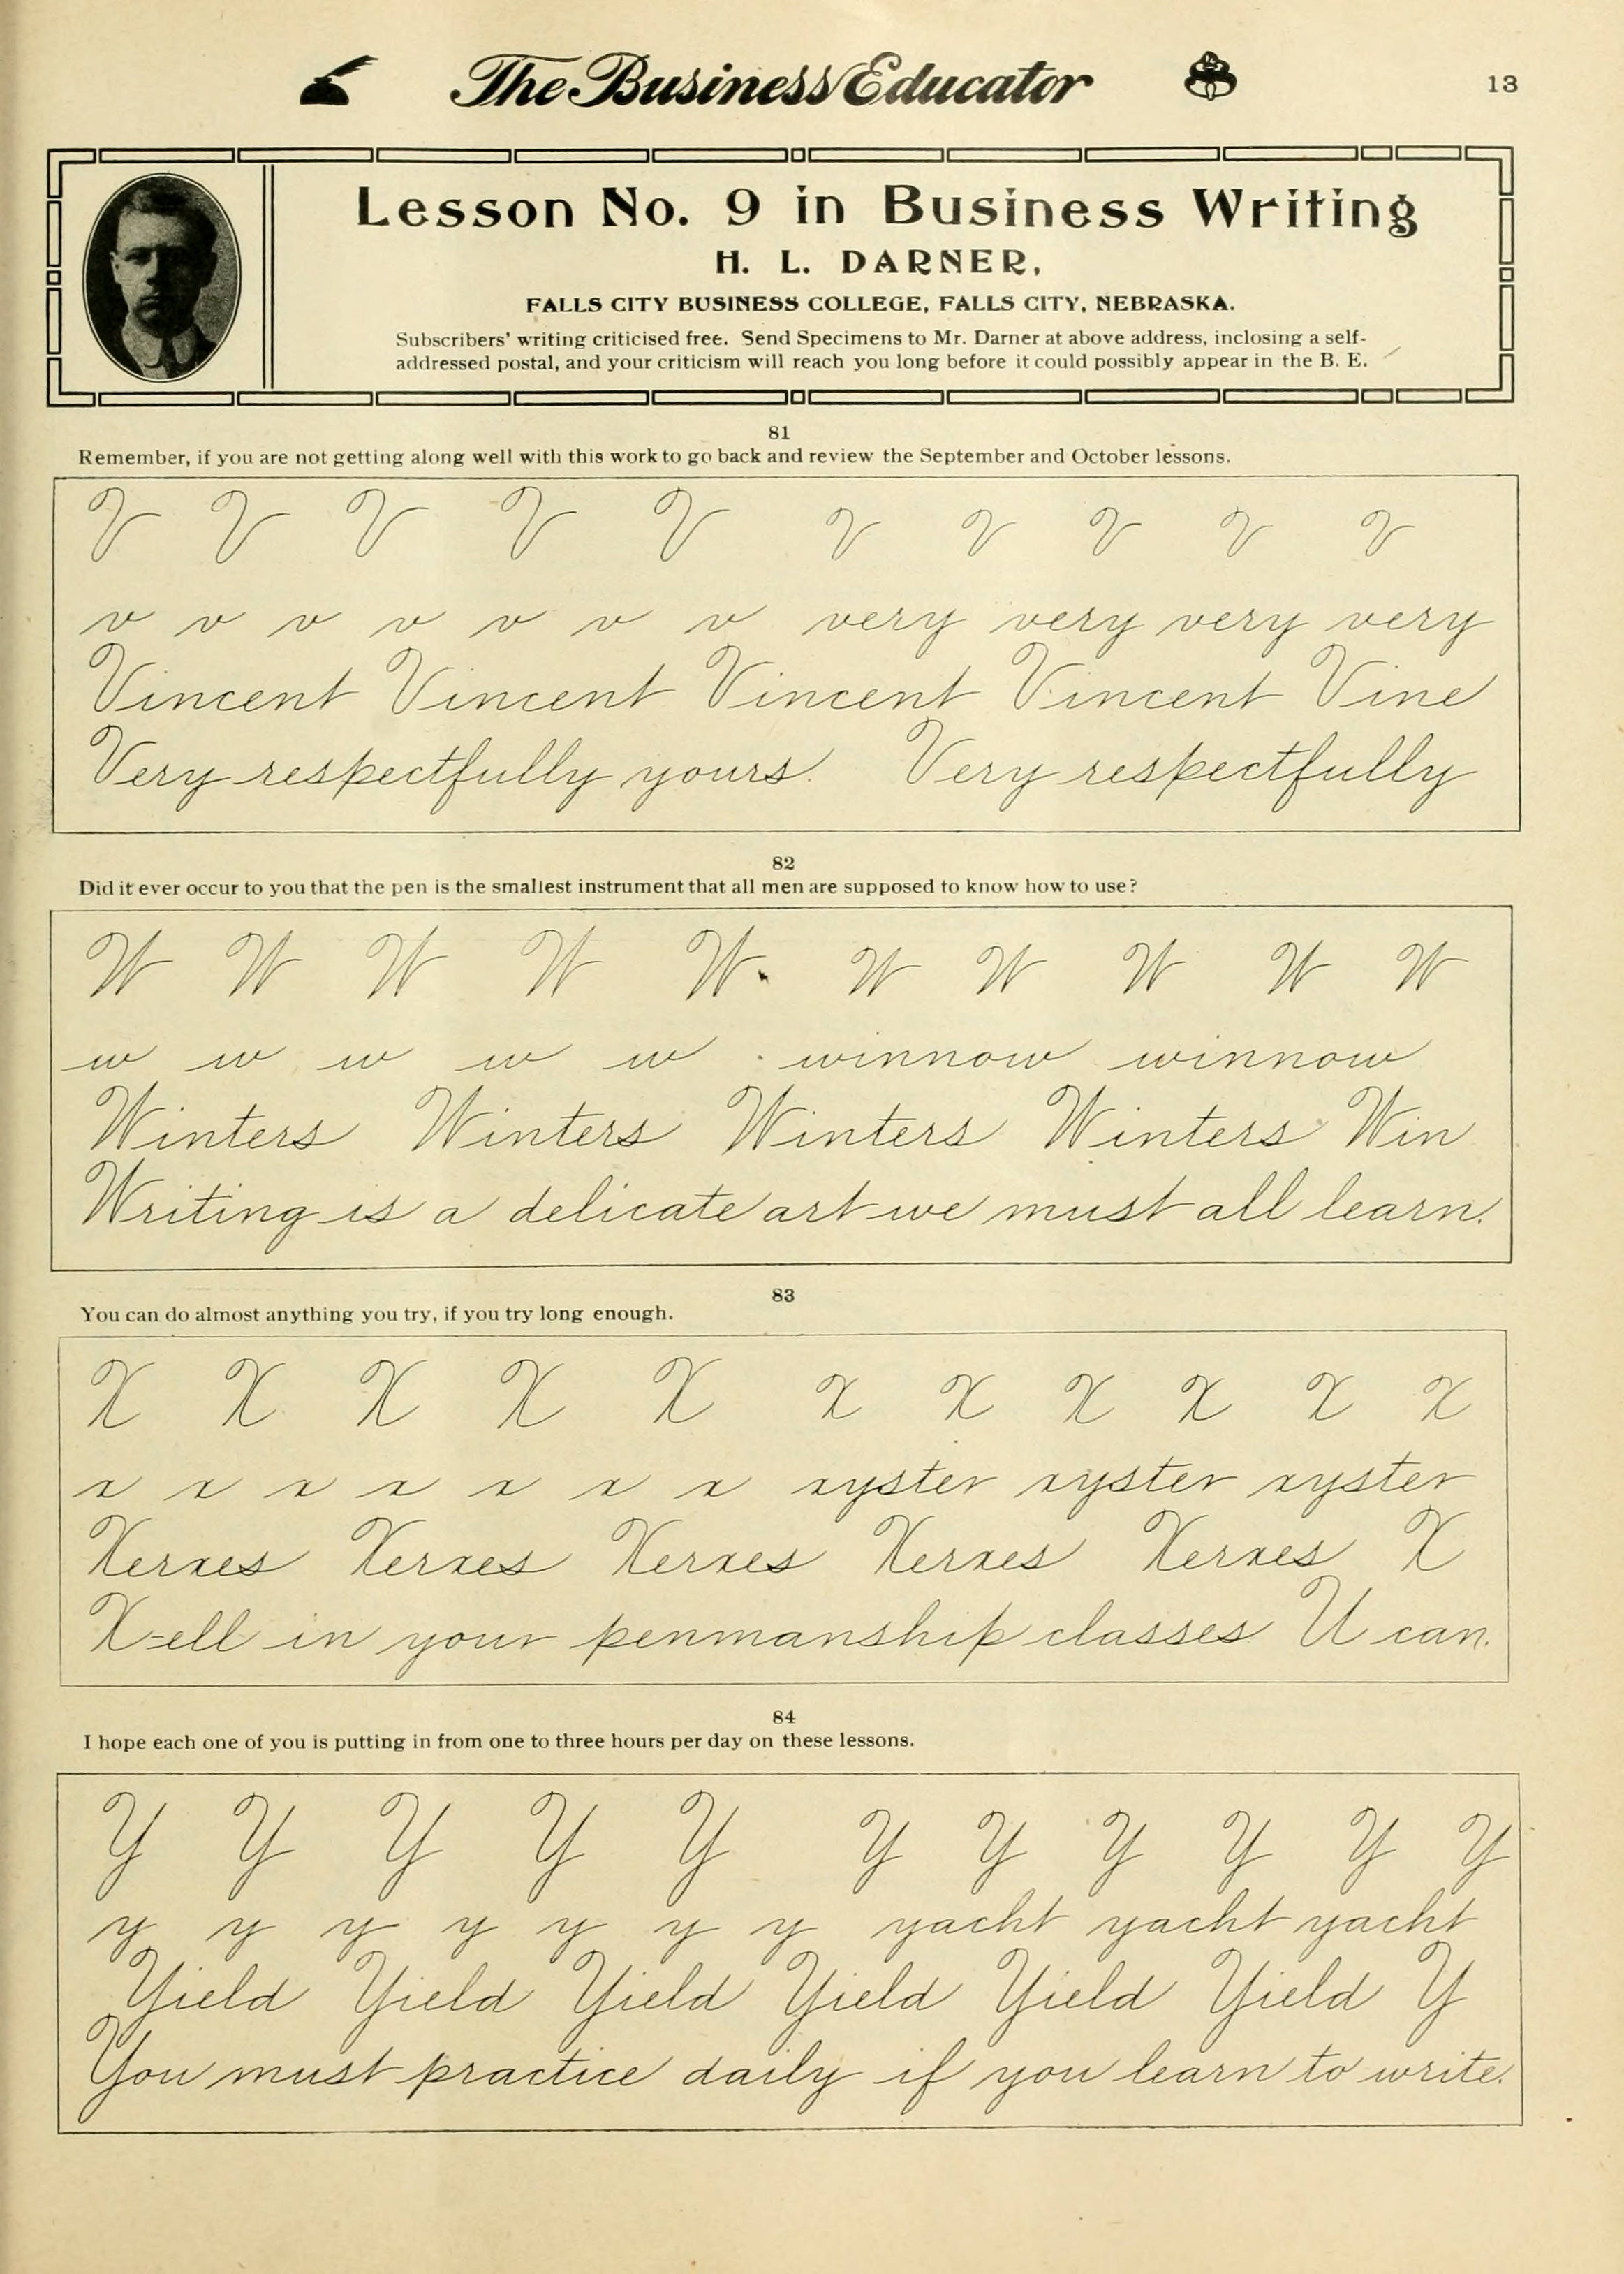 The Business Educator
13
Lesson No. 9 in Business Writing
H. L. DARNER,
FALLS CITY BUSINESS COLLEGE, FALLS CITY, NEBRASKA.
Subscribers' writing criticised free. Send Specimens to Mr. Darner at above address, inclosing a self-
addressed postal, and your criticism will reach you long before it could possibly appear in the B. E.
81
Remember, if you are not getting along well with this work to go back and review the September and October lessons.
V V V V V V V V V V
v v v v v v v very very very very
Vincent Vincent Vincent Vincent Vine
Very respectfully yours. Very respectfully
82
Did it ever occur to you that the pen is the smallest instrument that all men are supposed to know how to use?
W W W W W W W W W W
w w w w w winnow winnow
Winters Winters Winters Winters Win
Writing is a delicate art we must all learn.
83
You can do almost anything you try, if you try long enough.
X X X X X X X X X X X
x x x x x x x xyster xyster xyster
Xerxes Xerxes Xerxes Xerxes Xerxes X
X-ell in your penmanship classes U can.
84
I hope each one of you is putting in from one to three hours per day on these lessons.
Y Y Y Y Y Y Y Y Y Y Y
y y y y y y y yacht yacht yacht
Yield Yield Yield Yield Yield Yield Y
You must practice daily if you learn to write.